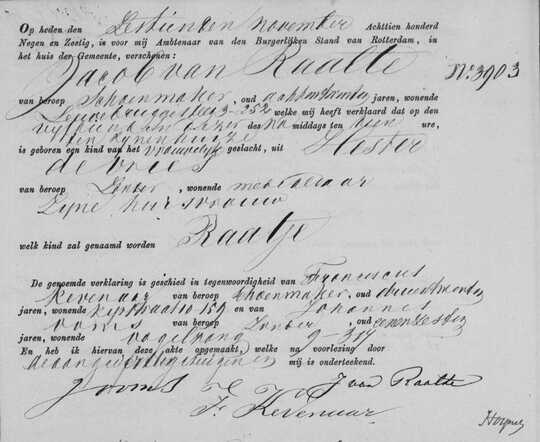 Op heden den Zestienden November Achttien honderd
Negen en Zestig, is voor mij Ambtenaar van den Burgerlijken Stand van Rotterdam, in
het huis der Gemeente, verschenen:
Jacob van Raalte
N:3903
van beroep Schoenmaker, oud achtentwintig jaren, wonende
welke mij heeft verklaard dat op den
vijftienden dezer des Na middags ten tien ure,
ten zijnen huize
is geboren een kind van het vrouwelijk geslacht, uit Hester
de Vries
van beroep Zonder, wonende met
Zijne huisvrouw
welk kind zal genaamd worden Raatje
De genoemde verklaring is geschied in tegenwoordigheid van Franciscus
Kevenaar van beroep Schoenmaker, oud
jaren, wonende 159 en van Johannes
Vooms van beroep Zonder, oud eenenzestig
jaren, wonende Vogelzang 9-314
En heb ik hiervan deze akte opgemaakt, welke na voorlezing door
de aangever en getuigen en mij is onderteekend.
J Vooms J van Raalte
Fr Kevenaar